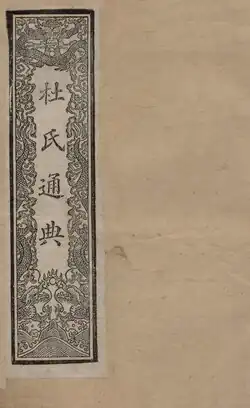 杜氏通典